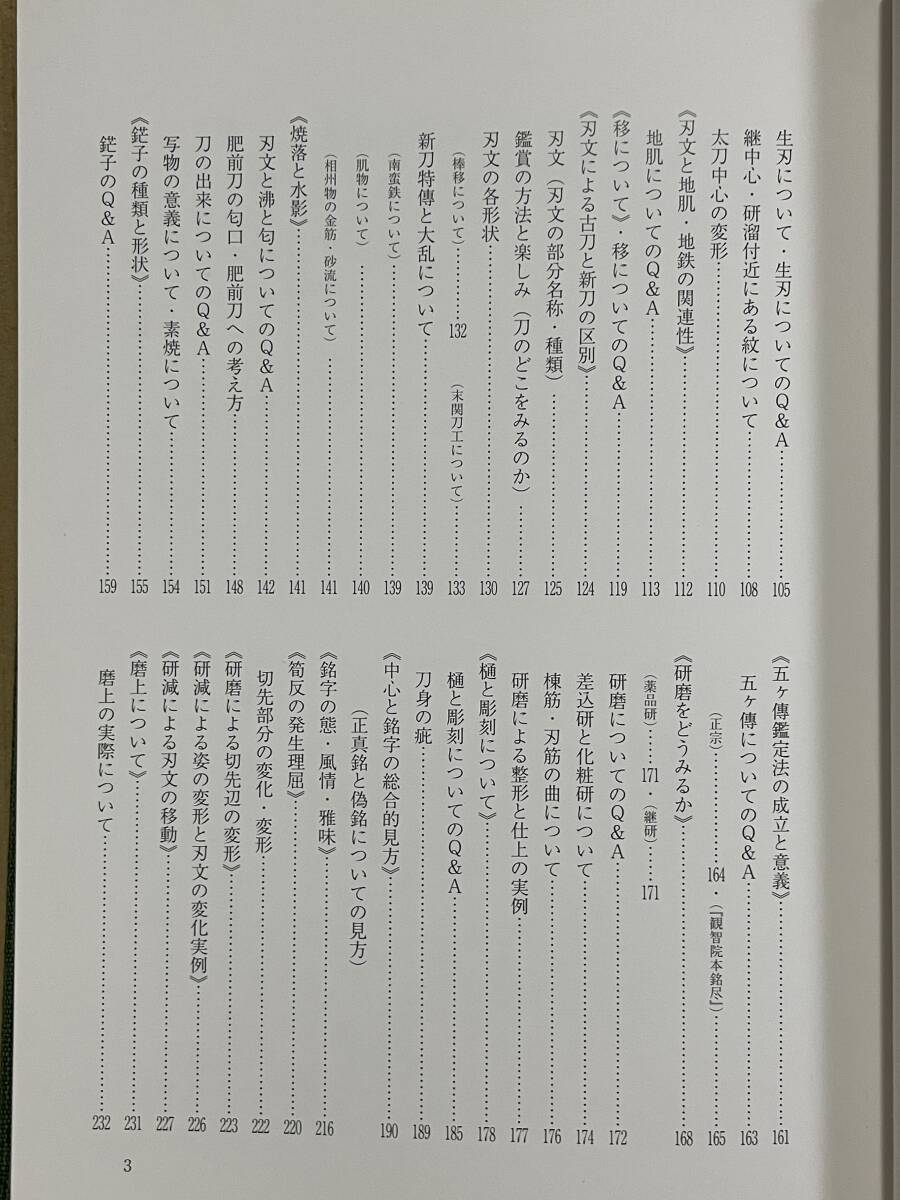 生刃について・生刃についてのQ&A……………105
継中心・研溜付近にある紋について……………108
太刀中心の変形……………110
《刃文と地肌・地鉄の関連性》……………112
地肌についてのQ&A……………113
《移について》・移についてのQ&A……………119
《刃文による古刀と新刀の区別》……………124
刃文(刃文の部分名称・種類)……………125
鑑賞の方法と楽しみ(刀のどこをみるのか)……………127
刃文の各形状……………130
(棒移について)……………132 (末関刀工について)……………133
新刀特傳と大乱について……………139
(南蛮鉄について)……………139
(肌物について)……………140
(相州物の金筋・砂流について)……………141
《焼落と水影》……………141
刃文と沸と匂についてのQ&A……………142
肥前刀の匂口・肥前刀への考え方……………148
刀の出来についてのQ&A……………151
写物の意義について・素焼について……………154
《鋩子の種類と形状》……………155
鋩子のQ&A……………159
《五ヶ傳鑑定法の成立と意義》……………161
五ヶ傳についてのQ&A……………163
(正宗)……………164・(『観智院本銘尽』)……………165
《研磨をどうみるか》……………168
(薬品研)……171・(継研)……171
研磨についてのQ&A……………172
差込研と化粧研について……………174
棟筋・刃筋の曲について……………176
研磨による整形と仕上の実例……………177
《樋と彫刻について》……………178
樋と彫刻についてのQ&A……………185
刀身の疵……………189
《中心と銘字の総合的見方》……………190
(正真銘と偽銘についての見方)
《銘字の態・風情・雅味》……………216
《筍反の発生理屈》……………220
切先部分の変化・変形……………222
《研磨による切先辺の変形》……………223
《研減による姿の変形と刃文の変化実例》……………226
《研減による刃文の移動》……………227
《磨上について》……………231
磨上の実際について……………232
3